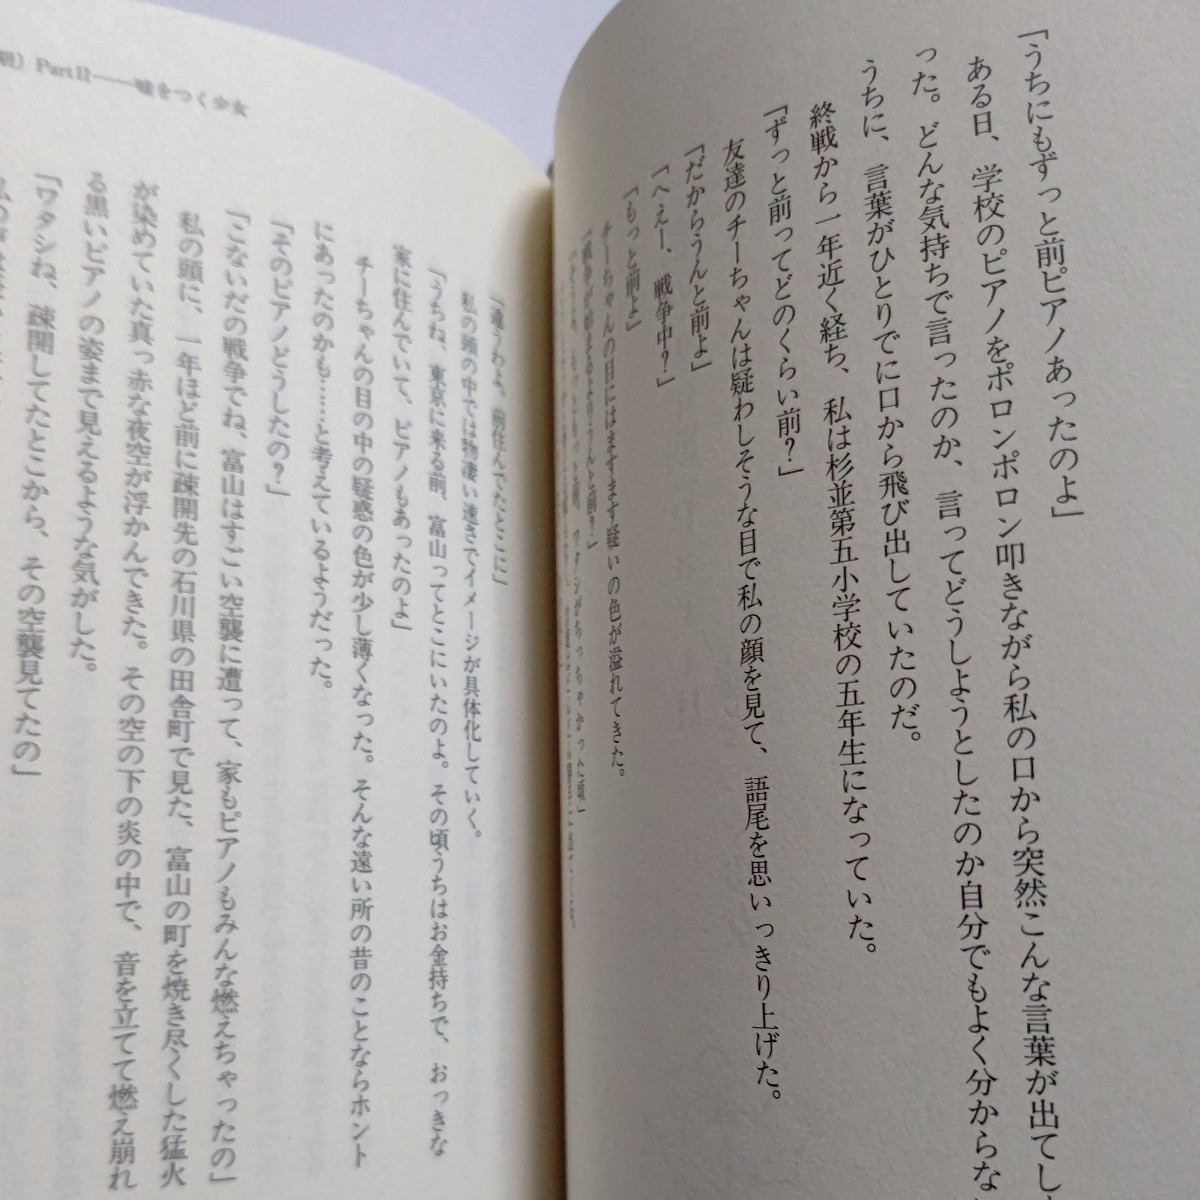 「うちにもずっと前ピアノあったのよ」
ある日、学校のピアノをポロンポロン叩きながら私の口から突然こんな言葉が出てし
った。どんな気持ちで言ったのか、言ってどうしようとしたのか自分でもよく分からな
うちに、言葉がひとりでに口から飛び出していたのだ。
終戦から一年近く経ち、私は杉並第五小学校の五年生になっていた。
「ずっと前ってどのくらい前？」
友達のチーちゃんは疑わしそうな目で私の顔を見て、語尾を思いっきり上げた。
「だからうんと前よ」
「へえー、戦争中？」
「もっと前よ」
チーちゃんの目にはますます疑いの色が溢れてきた。
「戦争が始まるよりうんと前？」
もっともっと前、ワタシがちっちゃかった頃」
PartⅡ──嘘をつく少女
「違うわよ。前住んでたとこに」
私の頭の中では物凄い速さでイメージが具体化していく。
「うちね、東京に来る前、富山ってとこにいたのよ。その頃うちはお金持ちで、おっきな
家に住んでいて、ピアノもあったのよ」
チーちゃんの目の中の疑惑の色が少し薄くなった。そんな遠い所の昔のことならホント
にあったのかも……と考えているようだった。
「そのピアノどうしたの？」
「こないだの戦争でね、富山はすごい空襲に遭って、家もピアノもみんな燃えちゃったの」
私の頭に、一年ほど前に疎開先の石川県の田舎町で見た、富山の町を焼き尽くした猛火
が染めていた真っ赤な夜空が浮かんできた。その空の下の炎の中で、音を立てて燃え崩れ
る黒いピアノの姿まで見えるような気がした。
「ワタシね、疎開してたとこから、その空襲見てたの」